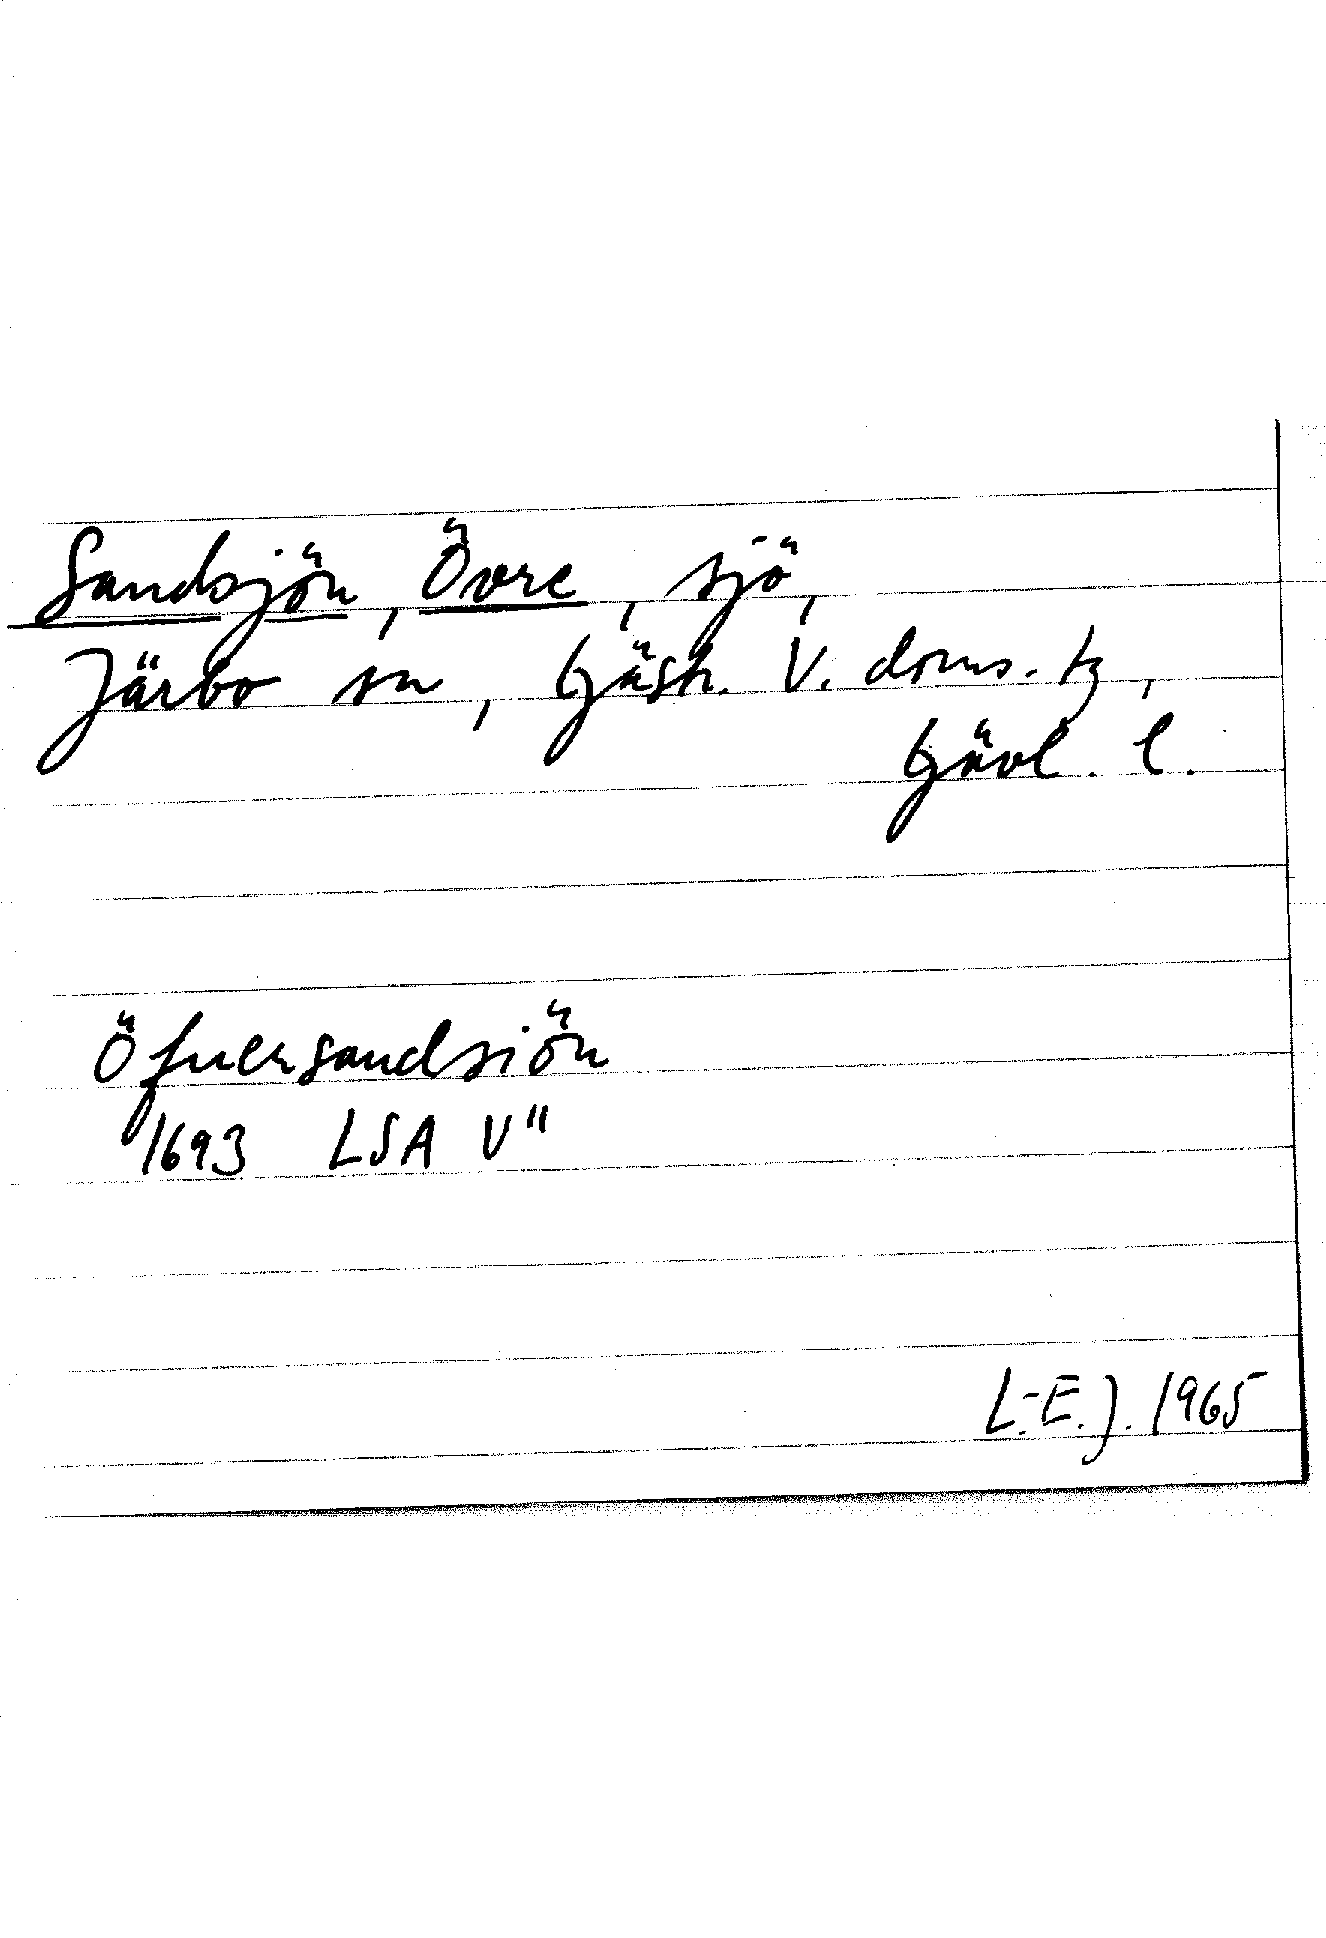 Sandsjön, Övre, sjö,
Järbo sn, Gästr. V. doms. tg,
Gävl. l.
Öfuersandsiön
1693 LSA V"
L.-E. J. 1965